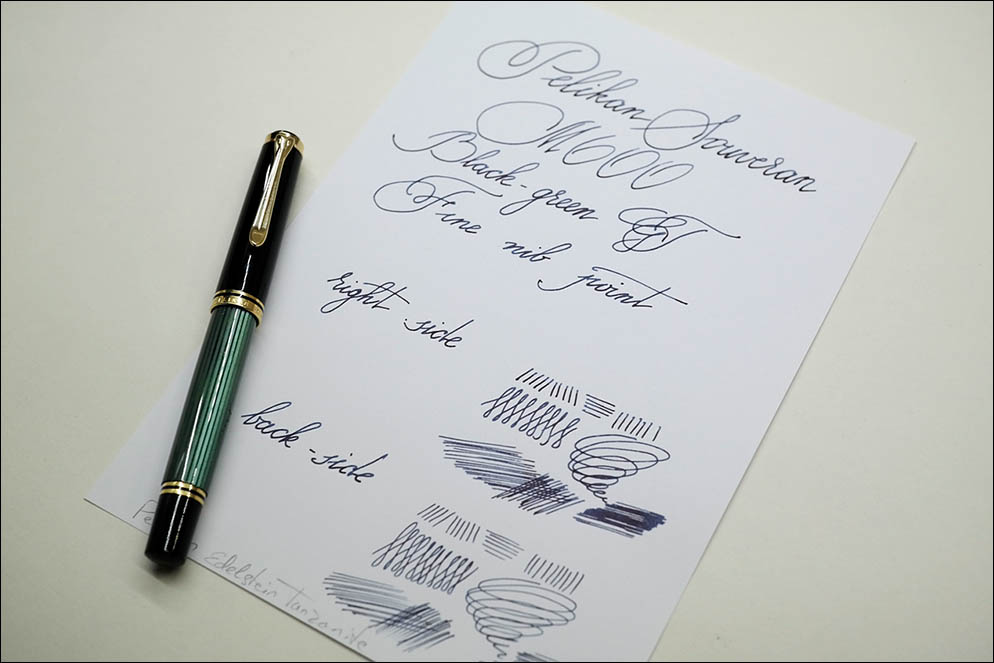 Pelikan Souveran
M600
Black-green GT
Fine nib point
right-side
back-side
Edelstein Tanzanite